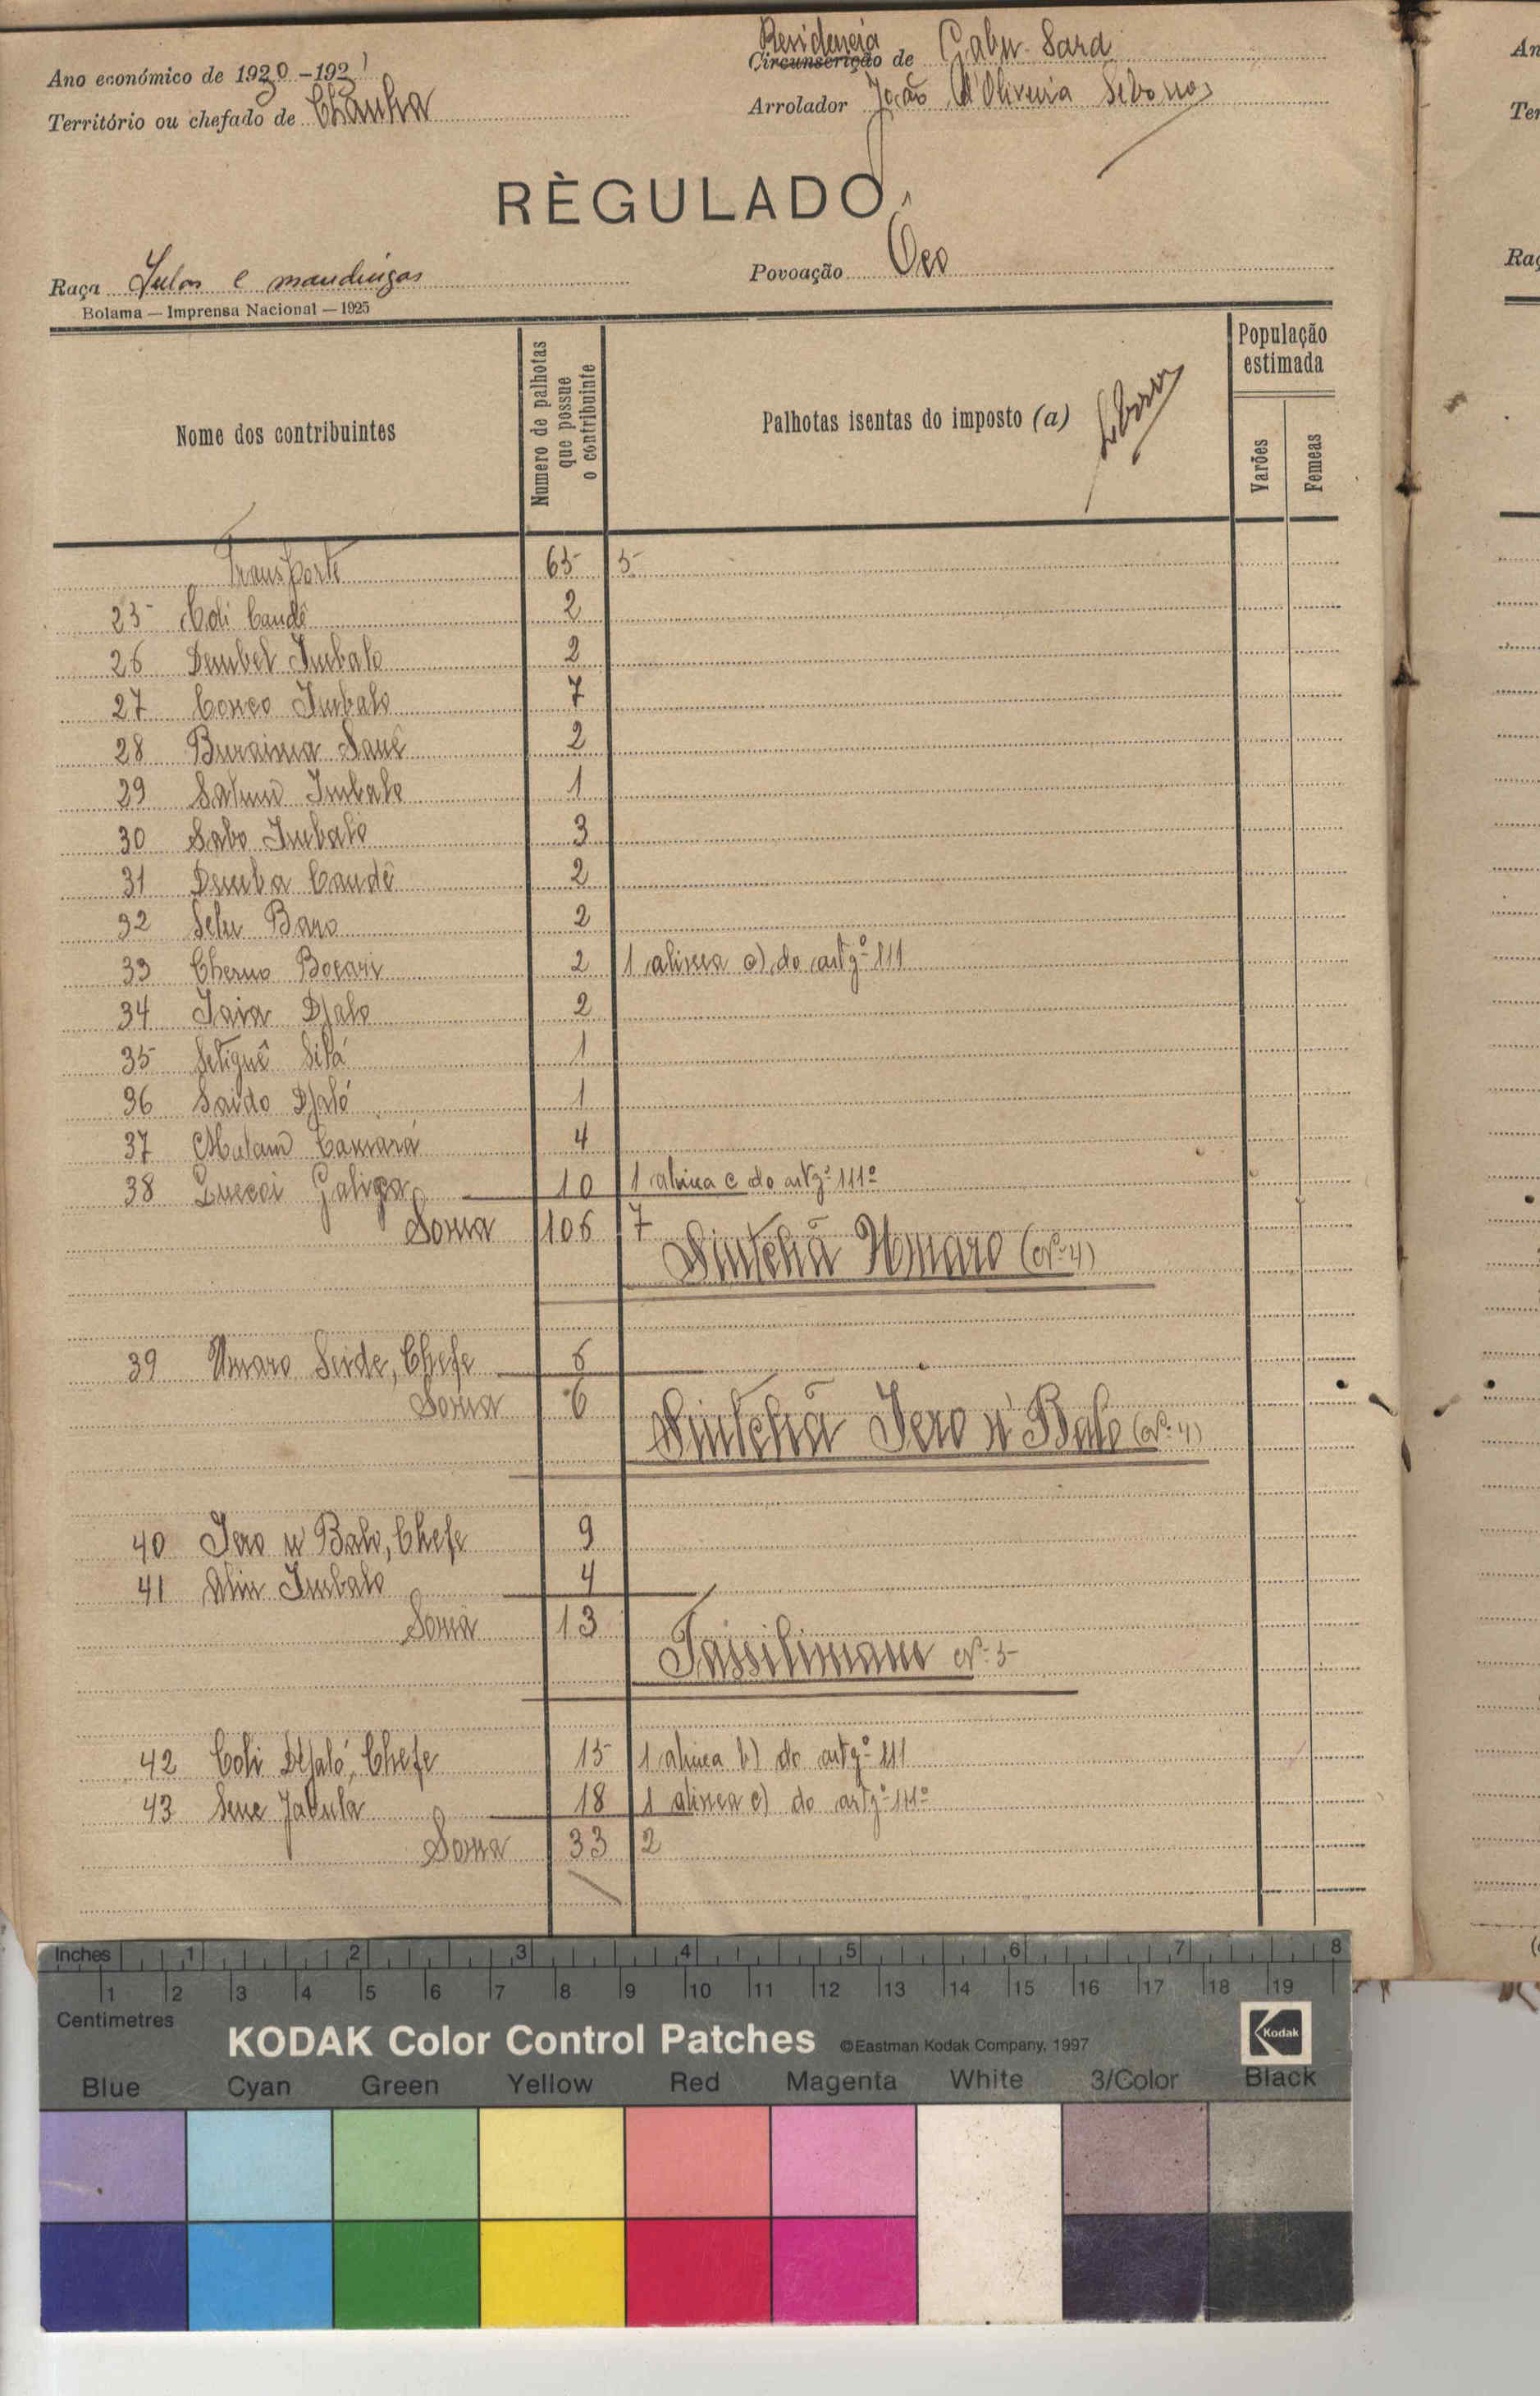 Ano económico de 1930-1931
Território ou chefado de Chanha
Residencia
Circunscrição de Gabu-Sara
Arrolador João d'Oliveira
RÈGULADO
Raça Fulas e mandingas
Povoação Oco
Bolama — Imprensa Nacional — 1925
Nome dos contribuintes
Numero de palhotas que possue o contribuinte
Palhotas isentas do imposto (a)
População estimada
Varões
Femeas
Transporte 65 5
25 Coli Candê 2
26 Dembel Imbalo 2
27 Conço Imbalo 7
28 Buraima Sané 2
29 Imbalo 1
30 Sabo Imbaló 3
31 Demba Candê 2
32 Selu Baro 2
33 Cherno Bocari 2 1 alinea c) do artgº 111
34 Iaia Djalo 2
35 Setiguê Silá 1
36 Saido Djaló 1
37 Malam Camará 4
38 10 1 alinea c do artgº 111º
Soma 106 7
Sintchã Umaro (Nº 4)
39 Umaro Seide, Chefe 6
Soma 6
Sintchã Iero n' Balo (Nº 4)
40 Iero n' Balo, Chefe 9
41 Aliu Imbalo 4
Soma 13
Tassilimam Nº 5
42 Coli Djaló, Chefe 15 1 alinea b) do artgº 111
43 Sene Jabula 18 1 alinea c) do artgº 111º
Soma 33 2
Inches 1 2 3 4 5 6 7 8
1 2 3 4 5 6 7 8 9 10 11 12 13 14 15 16 17 18 19
Centimetres
KODAK Color Control Patches ©Eastman Kodak Company, 1997
Kodak
Blue Cyan Green Yellow Red Magenta White 3/Color Black
An
Ter
Raç